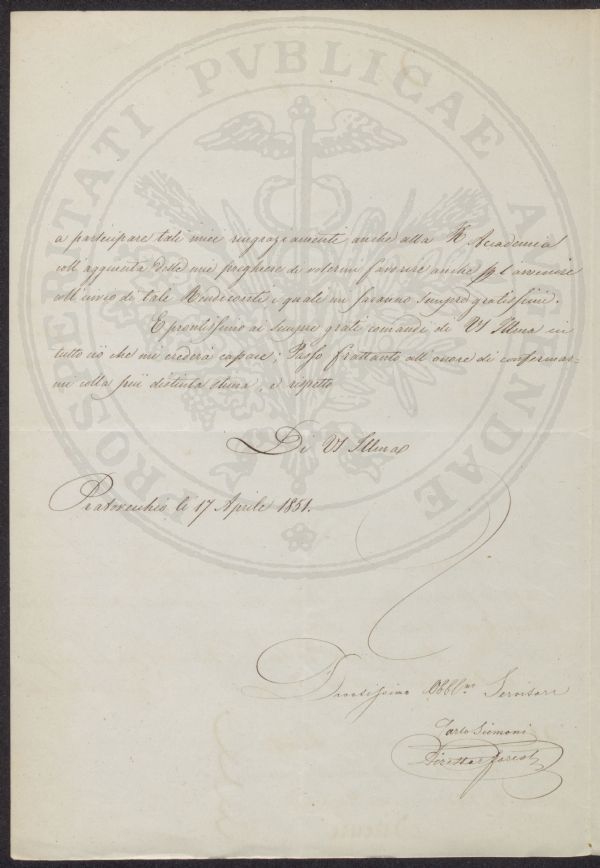 PROSPERITATI PVBLICAE AVGENDAE
a partecipare tali miei ringraziamenti anche alla R Accademia
coll' aggiunta delle mie preghiere di volermi favorire anche pp l'avvenire
coll' invio di tale Rendiconti i quale mi saranno sempre gratissimi.
E prontissimo ai sempre grati comandi di VS Illma in
tutto ciò che mi crederà capace; Passo frattanto all' onore di confermar=
mi colla più distinta stima, e rispetto
Di VS Illma
Pratovecchio li 17 Aprile 1851.
Devotissimo Obbl.mo Servitore
Carlo Siemoni
Direttor forest